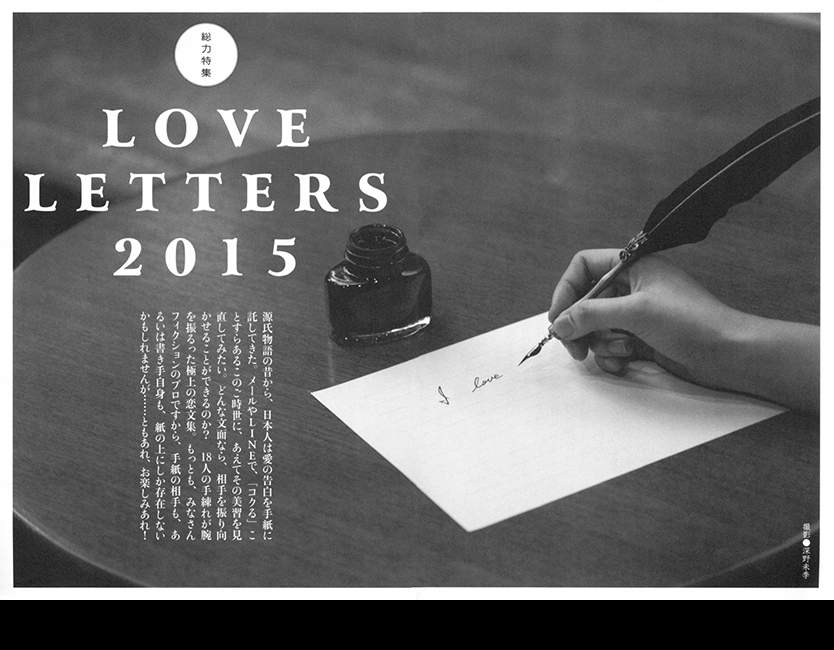 総力特集
LOVE
LETTERS
2015
源氏物語の昔から、日本人は愛の告白を手紙に
託してきた。メールやLINEで、「コクる」こ
とすらあるこのご時世に、あえてその美習を見
直してみたい。どんな文面なら、相手を振り向
かせることができるのか？　18人の手練れが腕
を振るった極上の恋文集。もっとも、みなさん
フィクションのプロですから、手紙の相手も、あ
るいは書き手自身も、紙の上にしか存在しない
かもしれませんが……ともあれ、お楽しみあれ！
I love
撮影●深野未季